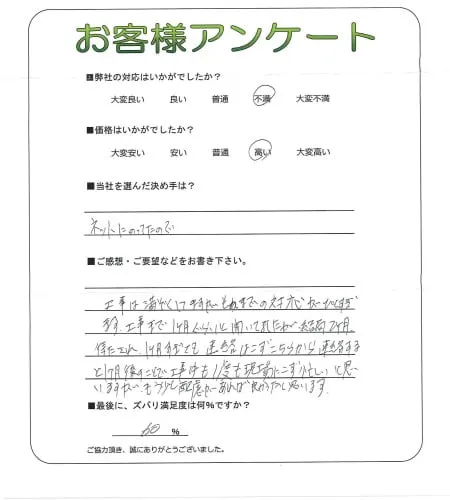 お客様アンケート
■弊社の対応はいかがでしたか？
大変良い 良い 普通 不満 大変不満
■価格はいかがでしたか？
大変安い 安い 普通 高い 大変高い
■当社を選んだ決め手は？
ネットにのってたので
■ご感想・ご要望などをお書き下さい。
工事は満足してますがそれまでの対応が
ます。工事まで1ヶ月くらいと聞いてましたが結局2ヶ月
待たされ、1ヶ月すぎても連絡はこずこちらから連絡する
と1ヶ月後のことで工事中も1度も現場にこず忙しいと思
いますがもう少し配慮があれば良かったと思います。
■最後に、ズバリ満足度は何%ですか？
60 %
ご協力頂き、誠にありがとうございました。